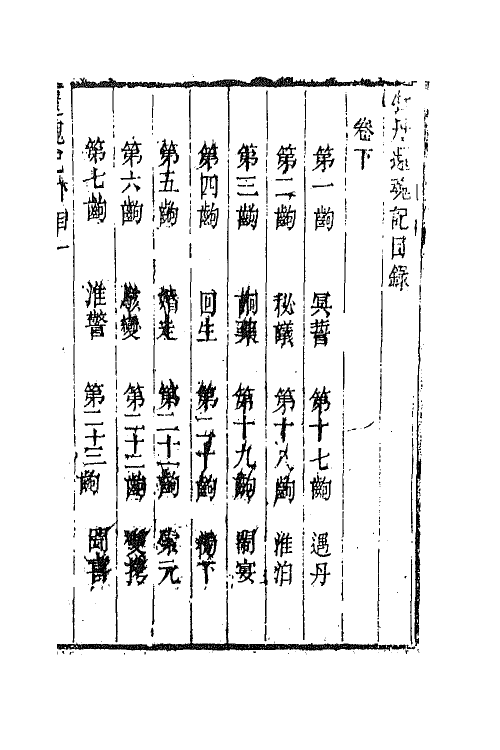 牡丹還魂記目錄
卷下
第一齣 冥誓 第十七齣 遇母
第二齣 秘議 第十八齣 淮泊
第三齣 詗藥 第十九齣 鬧宴
第四齣 回生 第二十齣 榜下
第五齣 婚走 第二十一齣 索元
第六齣 駭變 第二十二齣 硬拷
第七齣 淮警 第二十三齣 聞喜
還魂記 下 目一